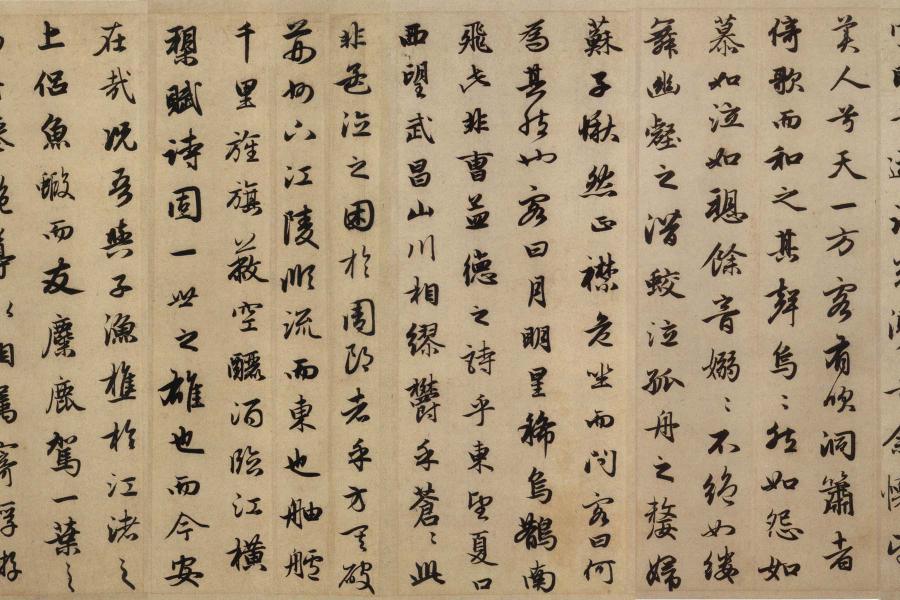 美人兮天一方客有吹洞簫者
倚歌而和之其聲烏〻然如怨如
慕如泣如愬餘音嫋〻不絕如縷
舞幽壑之潛蛟泣孤舟之嫠婦
蘇子愀然正襟危坐而問客曰何
為其然也客曰月明星稀烏鵲南
飛此非曹孟德之詩乎東望夏口
西望武昌山川相繆鬱乎蒼〻此
非孟德之困於周郎者乎方其破
荊州下江陵順流而東也舳艫
千里旌旗蔽空釃酒臨江橫
槊賦詩固一世之雄也而今安
在哉況吾與子漁樵於江渚之
上侶魚蝦而友麋鹿駕一葉之